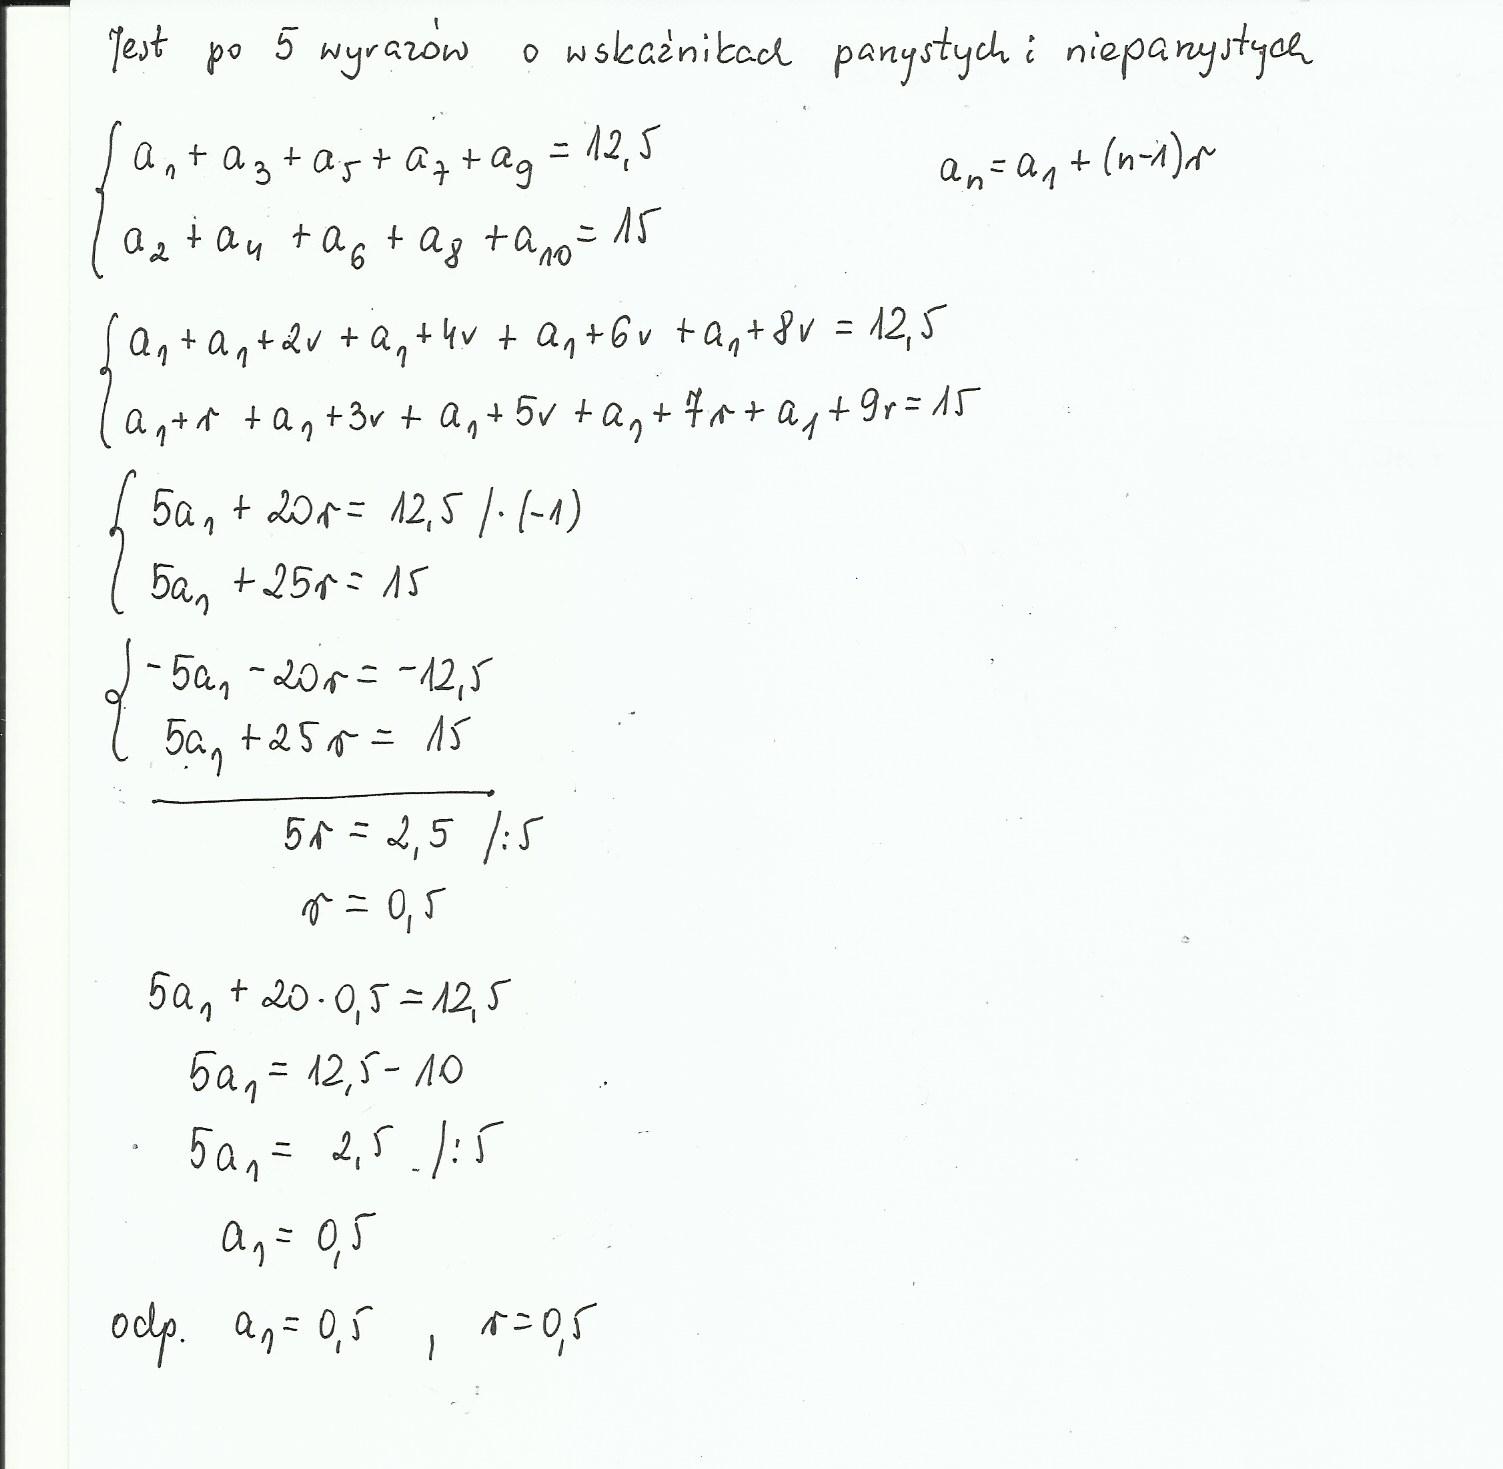 Jest po 5 wyrazów o wskaźnikach parzystych i nieparzystych
a₁ + a₃ + a₅ + a₇ + a₉ = 12,5
aₙ = a₁ + (n-1)r
a₂ + a₄ + a₆ + a₈ + a₁₀ = 15
a₁ + a₁ + 2r + a₁ + 4r + a₁ + 6r + a₁ + 8r = 12,5
a₁ + r + a₁ + 3r + a₁ + 5r + a₁ + 7r + a₁ + 9r = 15
5a₁ + 20r = 12,5 /·(-1)
5a₁ + 25r = 15
-5a₁ - 20r = -12,5
5a₁ + 25r = 15
5r = 2,5 /:5
r = 0,5
5a₁ + 20·0,5 = 12,5
5a₁ = 12,5 - 10
5a₁ = 2,5 /:5
a₁ = 0,5
odp. a₁ = 0,5 , r = 0,5